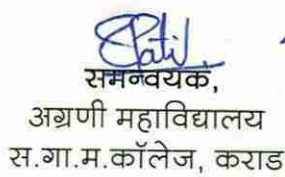 समन्वयक,
अग्रणी महाविद्यालय
स.गा.म.कॉलेज, कराड